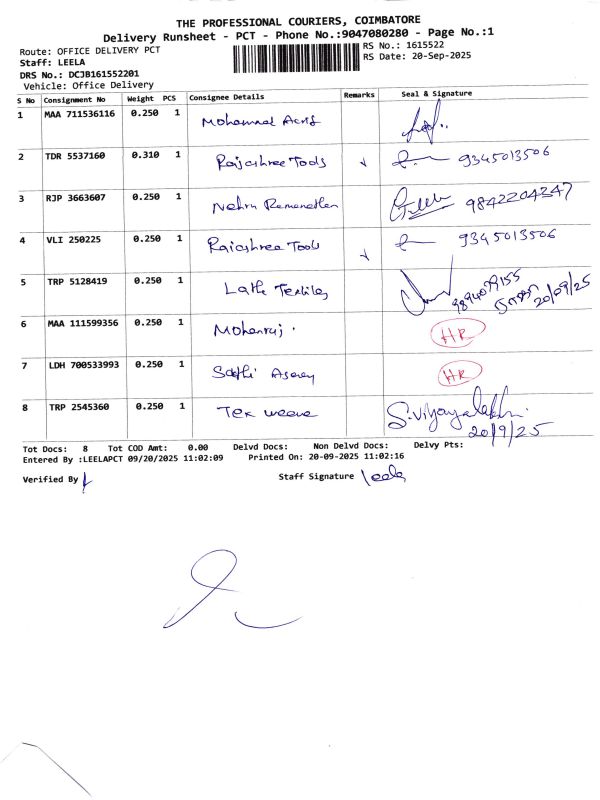 THE PROFESSIONAL COURIERS, COIMBATORE
Delivery Runsheet - PCT - Phone No.:9047080280 - Page No.:1
Route: OFFICE DELIVERY PCT RS No.: 1615522
Staff: LEELA RS Date: 20-Sep-2025
DRS No.: DCJB161552201
Vehicle: Office Delivery
S No Consignment No Weight PCS Consignee Details Remarks Seal & Signature
1 MAA 711536116 0.250 1 Mohammad
2 TDR 5537160 0.310 1 Rajashree Tools 9345013506
3 RJP 3663607 0.250 1 Nehru 9842204347
4 VLI 250225 0.250 1 Rajashree Tools 9345013506
5 TRP 5128419 0.250 1 Textiles 20/09/25
6 MAA 111599356 0.250 1 Mohanraj HR
7 LDH 700533993 0.250 1 HR
8 TRP 2545360 0.250 1 Tex weave S.Vijayalakshmi
20/9/25
Tot Docs: 8 Tot COD Amt: 0.00 Delvd Docs: Non Delvd Docs: Delvy Pts:
Entered By :LEELAPCT 09/20/2025 11:02:09 Printed On: 20-09-2025 11:02:16
Verified By Staff Signature leela